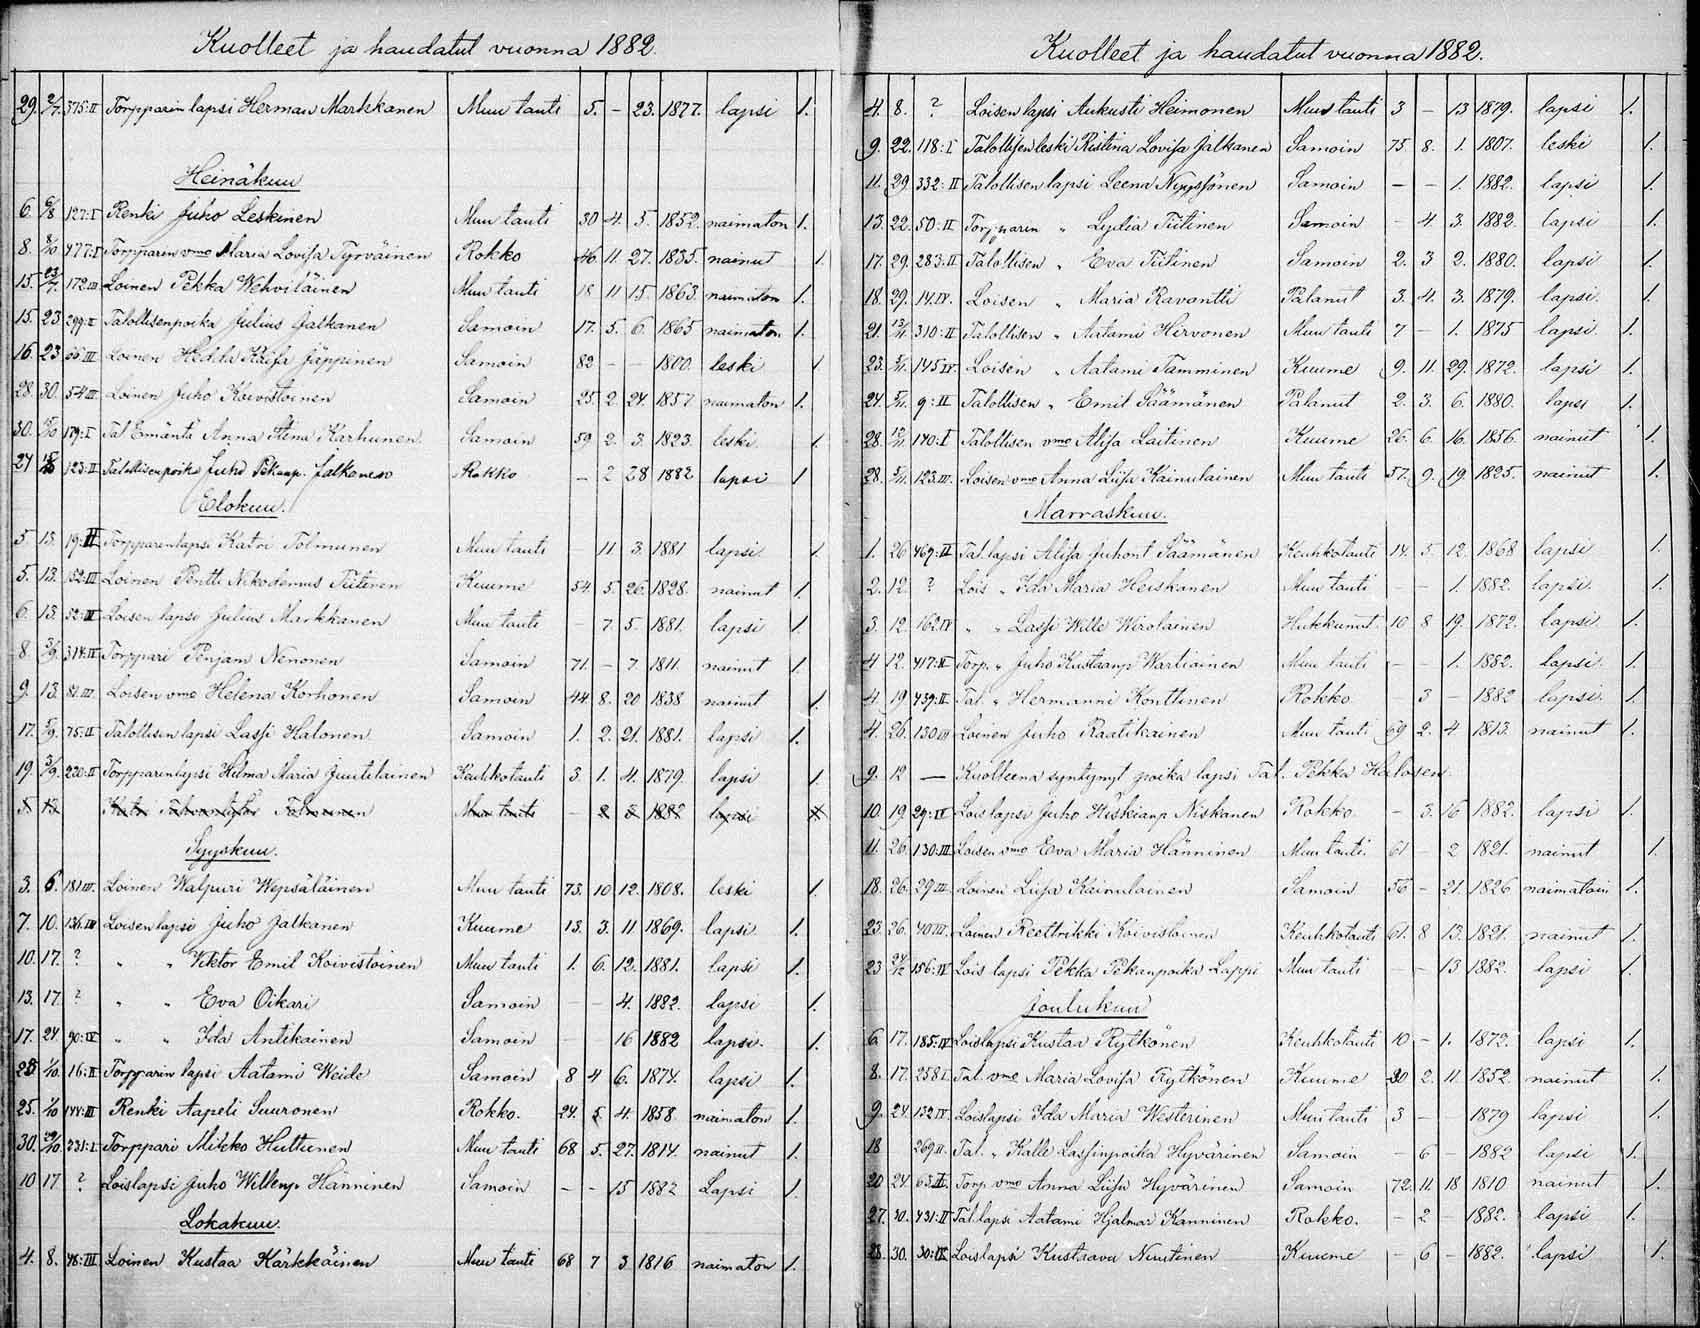 Kuolleet ja haudatut vuonna 1882.
29. 2/7. 375:II Torpparin lapsi Herman Markkanen Muu tauti 5. – 23. 1877. lapsi 1.
Heinäkuu
6. 6/8 127:I Renki Juho Leskinen Muu tauti 30 4. 5. 1852. naimaton 1.
8. 8/10 477:I Torpparin vmo Maria Lovisa Tyrväinen Rokko 46. 11. 27. 1835. nainut 1.
15. 23/7. 172.III Loinen Pekka Wehviläinen Muu tauti 18 11 15. 1863. naimaton 1.
15. 23 299:II Talollisenpoika Julius Jalkanen Samoin 17. 5. 6. 1865 naimaton 1.
16. 23 Loinen Hedda Kaisa Jäppinen Samoin 82 – – 1800. leski 1
28. 30. 54III Loinen Juho Koivistoinen Samoin 25. 2. 24. 1857 naimaton 1.
30. 179:I Tal Emäntä Anna Stena Karhunen Samoin 59 2. 3. 1823. leski 1
27 123:II Talollisenpoika Juho Pekanp. Jalkanen Rokko – 2 28 1882 lapsi 1
Elokuu.
5. 13. 19:II Torpparinlapsi Katri Tolmunen Muu tauti – 11. 3. 1881 lapsi 1.
5. 13. 152:III Loinen Pentti Nikodemus Tiitinen Kuume 54. 5. 26. 1828. nainut 1.
6. 13. 52:IV Loisen lapsi Julius Markkanen Muu tauti – 7. 5. 1881. lapsi 1.
8. 3/9. 314.II Torppari Penjam Nenonen Samoin 71. – 7. 1811. nainut 1.
9. 13. 81.III. Loisen vmo Helena Korhonen Samoin 44. 8. 20 1838 nainut 1.
17. 3/9. 75:II Talollisen lapsi Lassi Halonen Samoin 1. 2. 21. 1881. lapsi 1.
19. 3/9. 220:II Torpparinlapsi Hilma Maria Juutilainen Keuhkotauti 3. 1. 4. 1879. lapsi 1.
5 13 Katri Tolmunen Muu tauti – 1882 lapsi
Syyskuu.
3. 6. 181III. Loinen Walpuri Wepsäläinen Muu tauti 73. 10 12. 1808. leski 1.
7. 10. 136.IV Loisenlapsi Juho Jalkanen Kuume 13. 3. 11 1869. lapsi. 1.
10. 17. ? " " Viktor Emil Koivistoinen Muu tauti 1. 6. 12. 1881. lapsi 1.
13. 17. ? " " Eva Oikari Samoin – – 4. 1882. lapsi 1.
17. 24. 90:IV " " Ida Antikainen Samoin – 16 1882 lapsi. 1.
25 1/10. 16:II Torpparin lapsi Aatami Weide Samoin 8 4 6. 1874. lapsi. 1.
25. 1/10 144:III Renki Aapeli Suuronen Rokko. 24. 5 4. 1858. naimaton 1.
30. 29/10. 231:I Torppari Mikko Huttunen Muu tauti 68 5. 27. 1814. nainut 1.
10 17. ? Loislapsi Juho Willenp Hänninen Samoin – – 15 1882 Lapsi 1.
Lokakuu.
4. 8. 46:III Loinen Kustaa Kärkkäinen Muu tauti 68 7 3 1816 naimaton 1.
Kuolleet ja haudatut vuonna 1882.
4. 8. ? Loisen lapsi Aukusti Heimonen Muu tauti 3 – 13 1879. lapsi 1.
9. 22. 118:I Talollisenleski Ristina Lovisa Jalkanen Samoin 75 8. 1. 1807. leski 1.
11. 29. 332:II Talollisen lapsi Leena Nyyssönen Samoin – – 1. 1882. lapsi 1.
13. 22. 50:II Torpparin " Lydia Tiitinen Samoin – 4 3. 1882. lapsi 1.
17. 29. 283.II Talollisen " Eva Tiitinen Samoin 2. 3 2. 1880. lapsi 1.
18. 29. 14.IV. Loisen " Maria Ravantti Palanut 3. 4. 3. 1879. lapsi. 1.
21. 12/11. 310:II Talollisen " Aatami Hirvonen Muu tauti 7 – 1. 1875 lapsi. 1.
23. 5/11. 145IV. Loisen " Aatami Tamminen Kuume 9. 11. 29. 1872. lapsi 1.
24. 5/11. 9:II Talollisen " Emil Säämänen Palanut 2. 3. 6. 1880. lapsi 1.
28. 12/11. 140:I Talollisen vmo Alisa Laitinen Kuume 26. 6. 16. 1856. nainut 1.
28. 5/11. 123.III. Loisen vmo Anna Liisa Kainulainen Muu tauti 57. 9. 19. 1825. nainut 1.
Marraskuu.
1. 26 469:II Tal. lapsi Alisa Juhont Säämänen Keuhkotauti 14. 5. 12. 1868 lapsi 1.
2. 12. ? Lois " Ida Maria Heiskanen Muu tauti – – 1. 1882. lapsi. 1.
3. 12. 162IV " " Lassi Wille Wirolainen Hukkunut. 10 8 19. 1872. lapsi. 1.
4 12. 417:II Torp. " Juho Kustaanp Wartiainen Muu tauti – – 1. 1882. lapsi. 1.
4. 19 439.II Tal. " Hermanni Konttinen Rokko – 3 – 1882 lapsi. 1.
4. 26. 130III Loinen Juho Raatikainen Muu tauti 69 2. 4 1813. nainut 1.
9. 12 — Kuolleena syntynyt poika lapsi Tal. Pekka Halosen.
10. 19. 29:IV Loislapsi Juho Hiskianp Niskanen Rokko. – 3. 16 1882. lapsi 1.
11. 26. 130:III Loisen vmo Eva Maria Hänninen Muu tauti. 61 – 2 1821. nainut 1.
18. 26. 29III Loinen Liisa Kainulainen Samoin 56 – 21. 1826 naimatoin 1.
23. 26. 40III. Loinen Reettrikki Koivistoinen Keuhkotauti 61. 8 13. 1821. nainut 1.
23 156:IV Lois lapsi Pekka Pekanpoika Lappi Muu tauti – – 13 1882. lapsi 1.
Joulukuu
6. 17. 185.IV Loislapsi Kustaa Rytkönen Keuhkotauti 10. – 1. 1872. lapsi 1.
8. 17. 258I Tal. vmo Maria Lovisa Rytkönen Kuume 30 2. 11. 1852. nainut 1.
9. 24. 132IV. Loislapsi Ida Maria Westerinen Muu tauti 3 – 1879 lapsi 1.
18 269II. Tal. " Kalle Lassinpoika Hyvärinen Samoin – 6 – 1882 lapsi 1.
20 24 63II. Torp. vmo Anna Liisa Hyvärinen Samoin 72. 11. 18 1810 nainut 1.
27. 30. 431:II Tal.lapsi Aatami Hjalmar Kanninen Rokko. – 2 – 1882. lapsi 1.
28. 30. 30:IV Loislapsi Kustaava Nuutinen Kuume – 6 – 1882. lapsi 1.